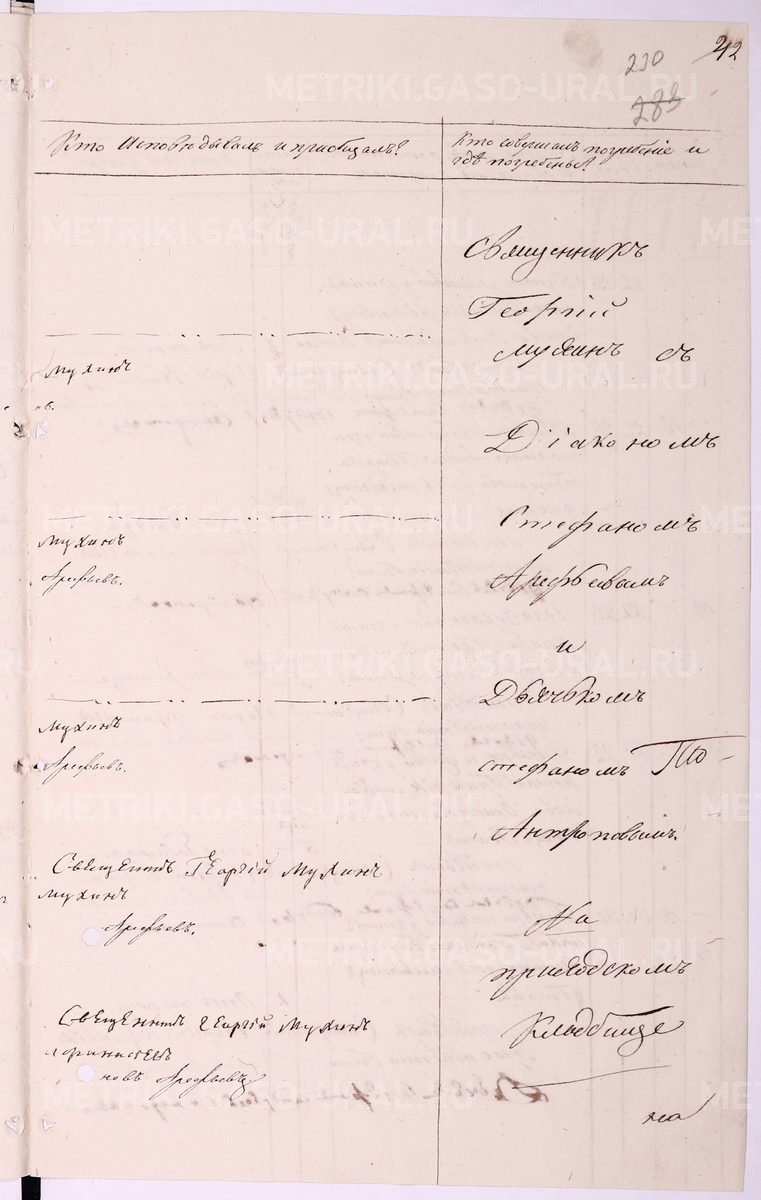 42
230
283
Кто Исповѣдывалъ и приобщалъ?
Кто совершалъ погребенiе и
гдѣ погребены?
METRIKI.GASO-URAL.RU
Священникъ
Георгiй
Мухинъ съ
Дiакономъ
Стефаномъ
Арефьевымъ
и
Дьячкомъ
Стефаномъ
Антроповымъ.
На
приходскомъ
Кладбище
Мухинъ
Мухинъ
Арефьевъ.
Мухинъ
Арефьевъ.
Священникъ Георгiй Мухинъ
Мухинъ
Арефьевъ.
Священникъ Георгiй Мухинъ
новъ Арефьевъ